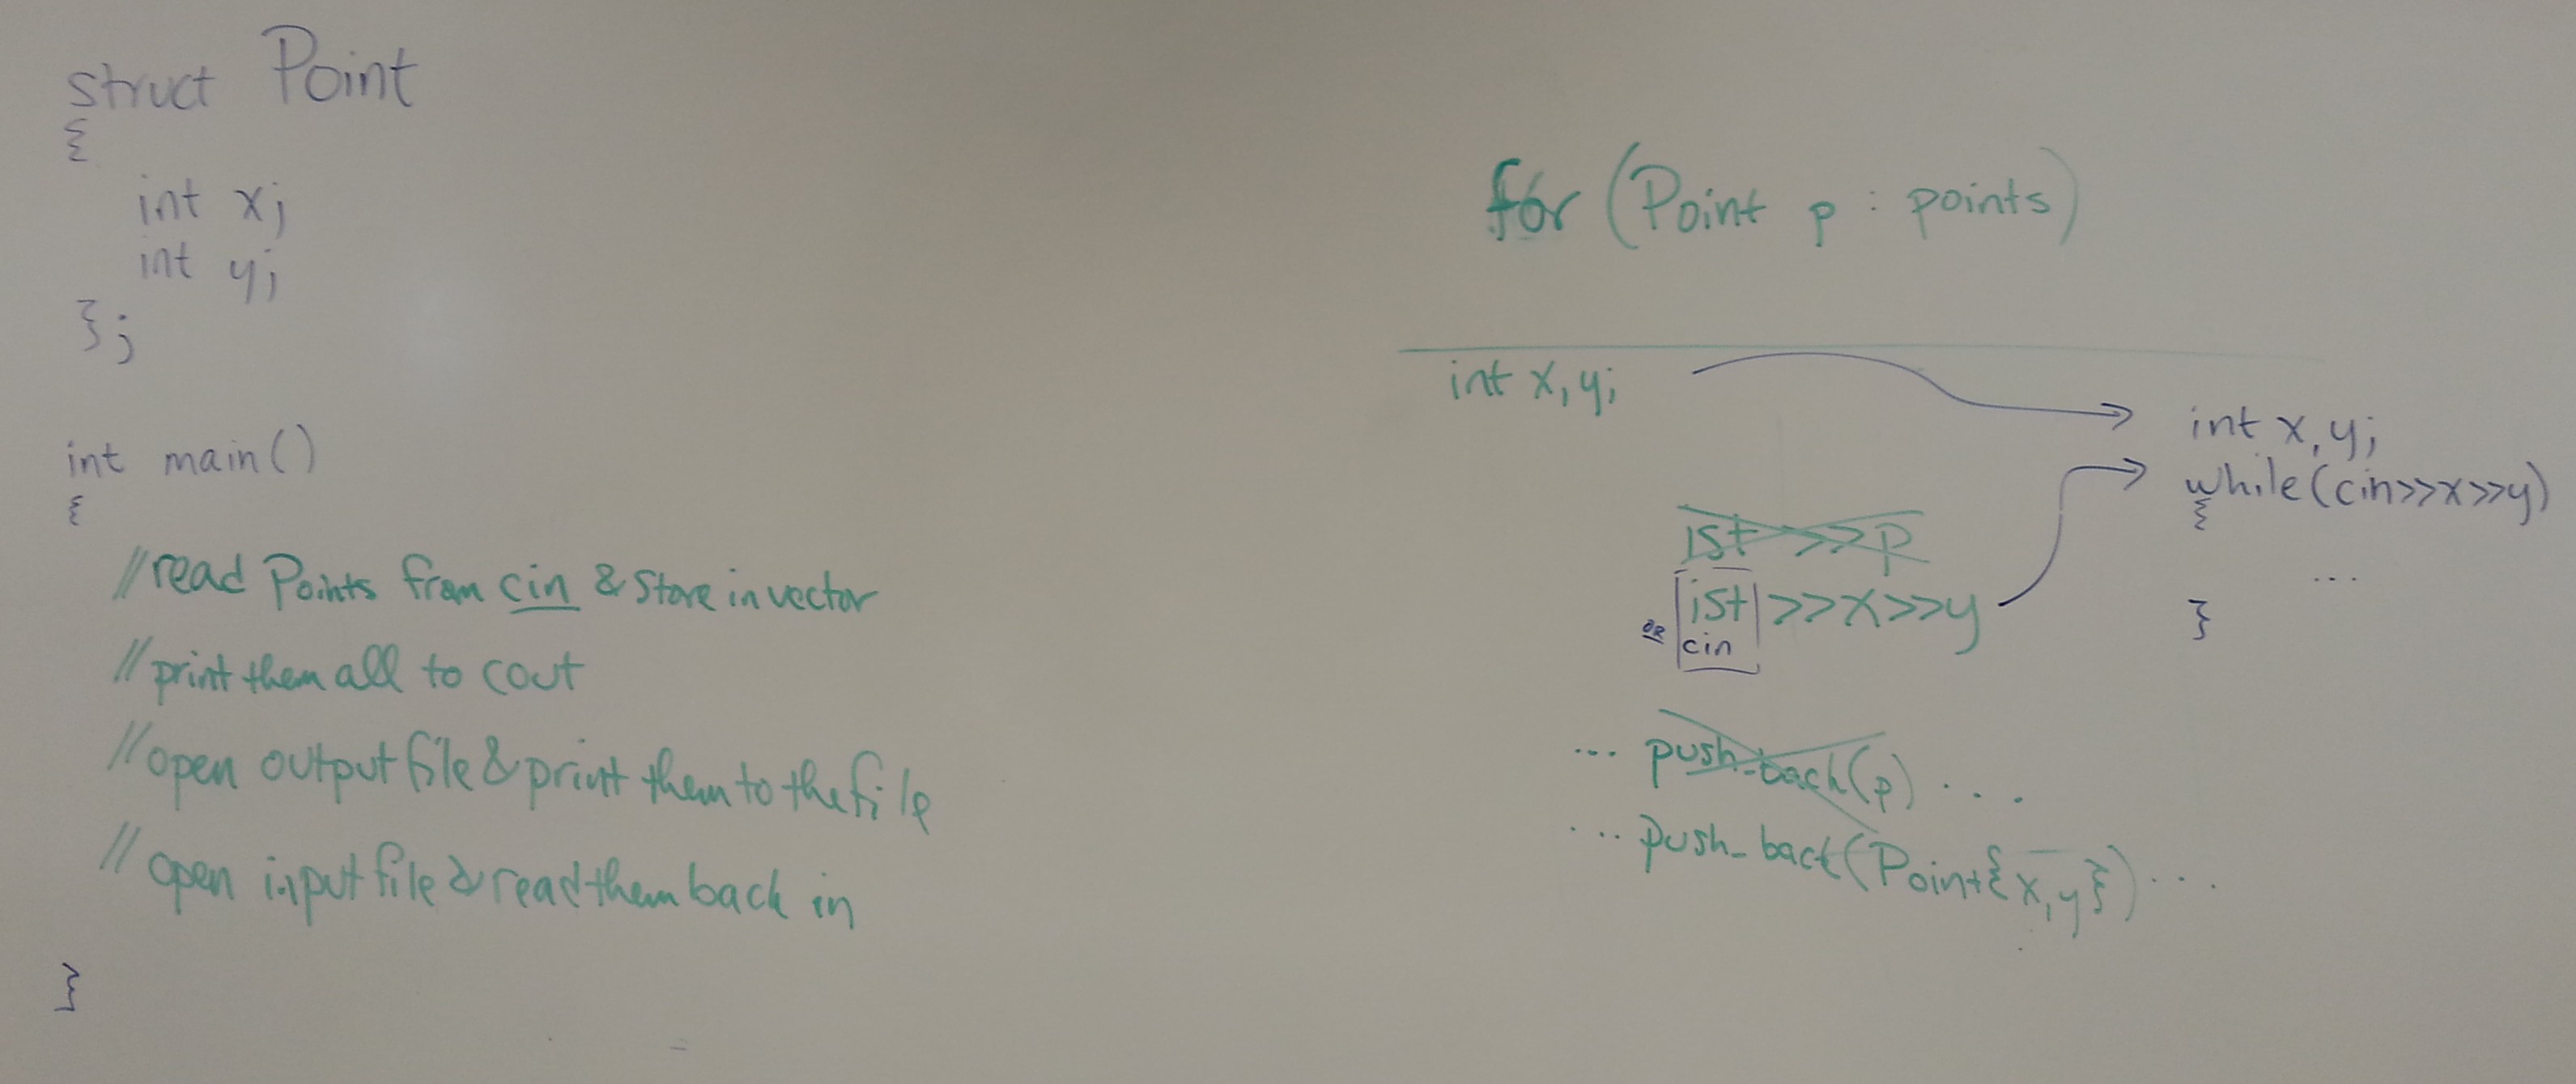 struct Point
{
int x;
int y;
};
int main()
{
//read Points from cin & store in vector
//print them all to cout
//open output file & print them to the file
//open input file & read them back in
}
for (Point p : points)
int x, y;
ist >> p
ist >> x >> y
OR cin
... push_back(p) ....
... push_back(Point{x,y}) ...
int x, y;
while(cin>>x>>y)
{
...
}